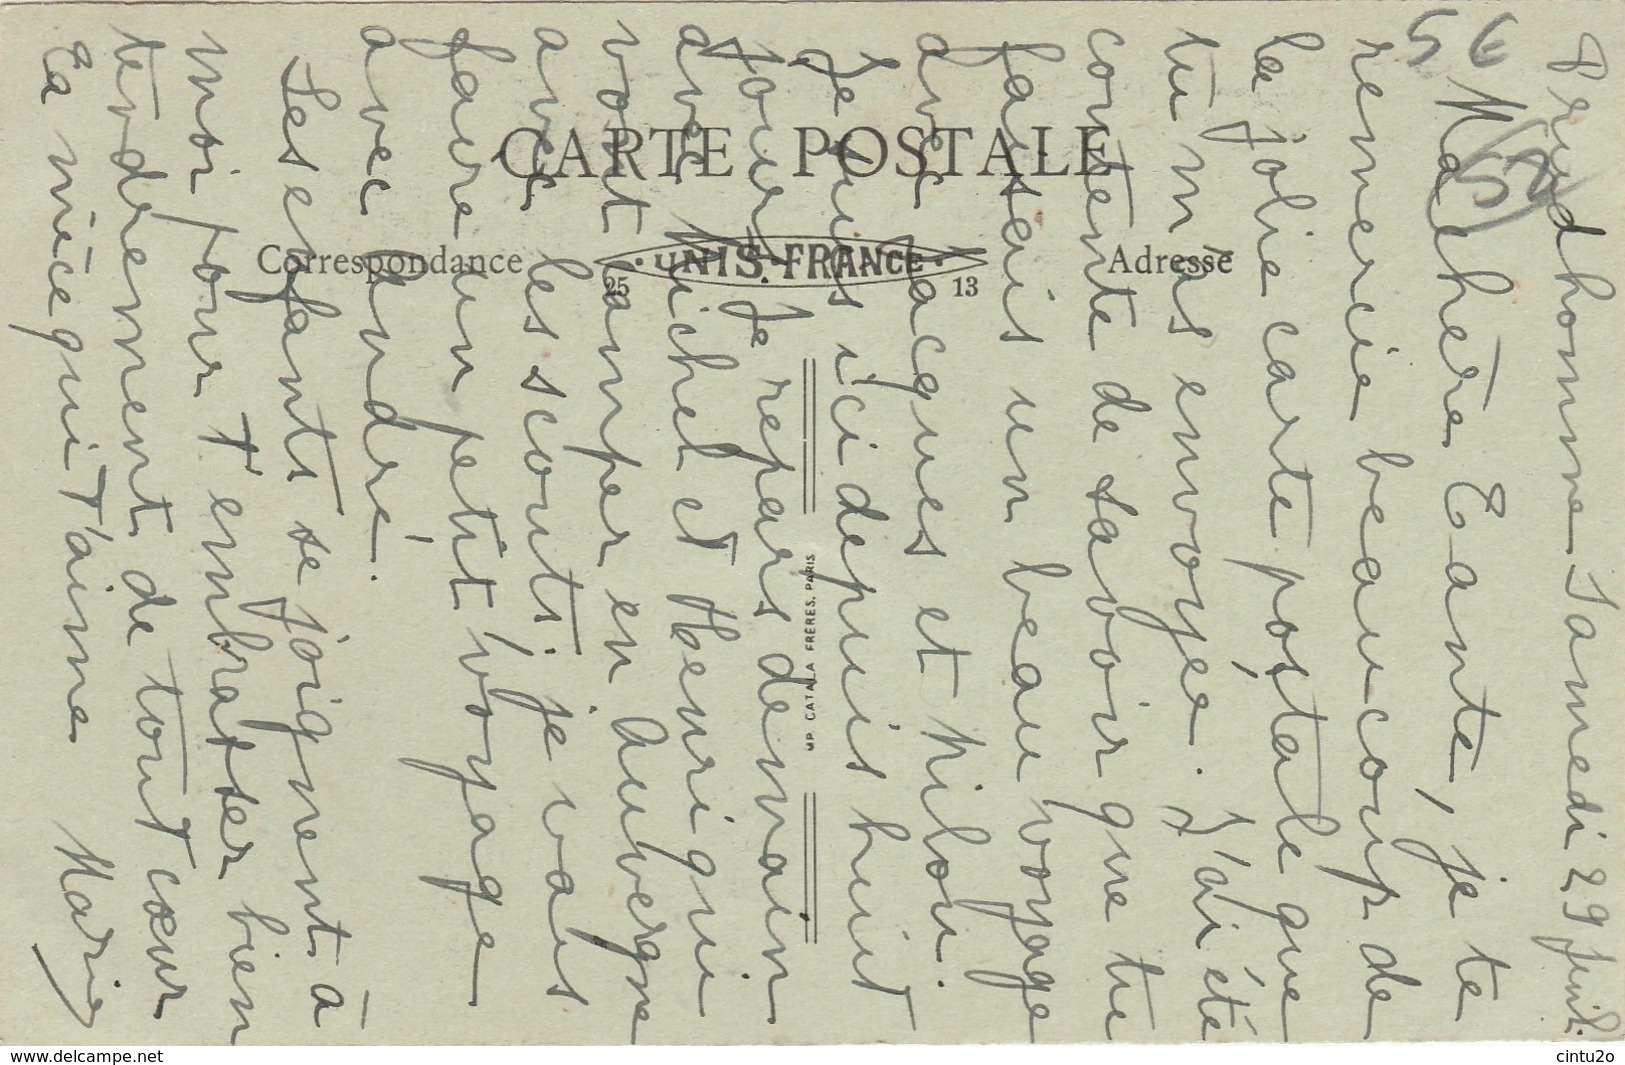 Prudhomme Samedi 29 Juil.
56
52
Ma chère Tante, je te
remercie beaucoup de
la jolie carte postale que
tu m'as envoyée. J'ai été
contente de savoir que tu
faisais un beau voyage
avec Jacques et Pilou.
Je suis ici depuis huit
jours. Je repars demain
avec Michel et Henri qui
vont camper en Auvergne
avec les scouts, je vais
faire un petit voyage
avec André.
Les enfants se joignent à
moi pour t'embrasser bien
tendrement de tout cœur
Ta nièce qui t'aime Marie
CARTE POSTALE
Correspondance
UNIS-FRANCE
25
13
Adresse
IMP. CATALA FRÈRES, PARIS
www.delcampe.net
cintu2o